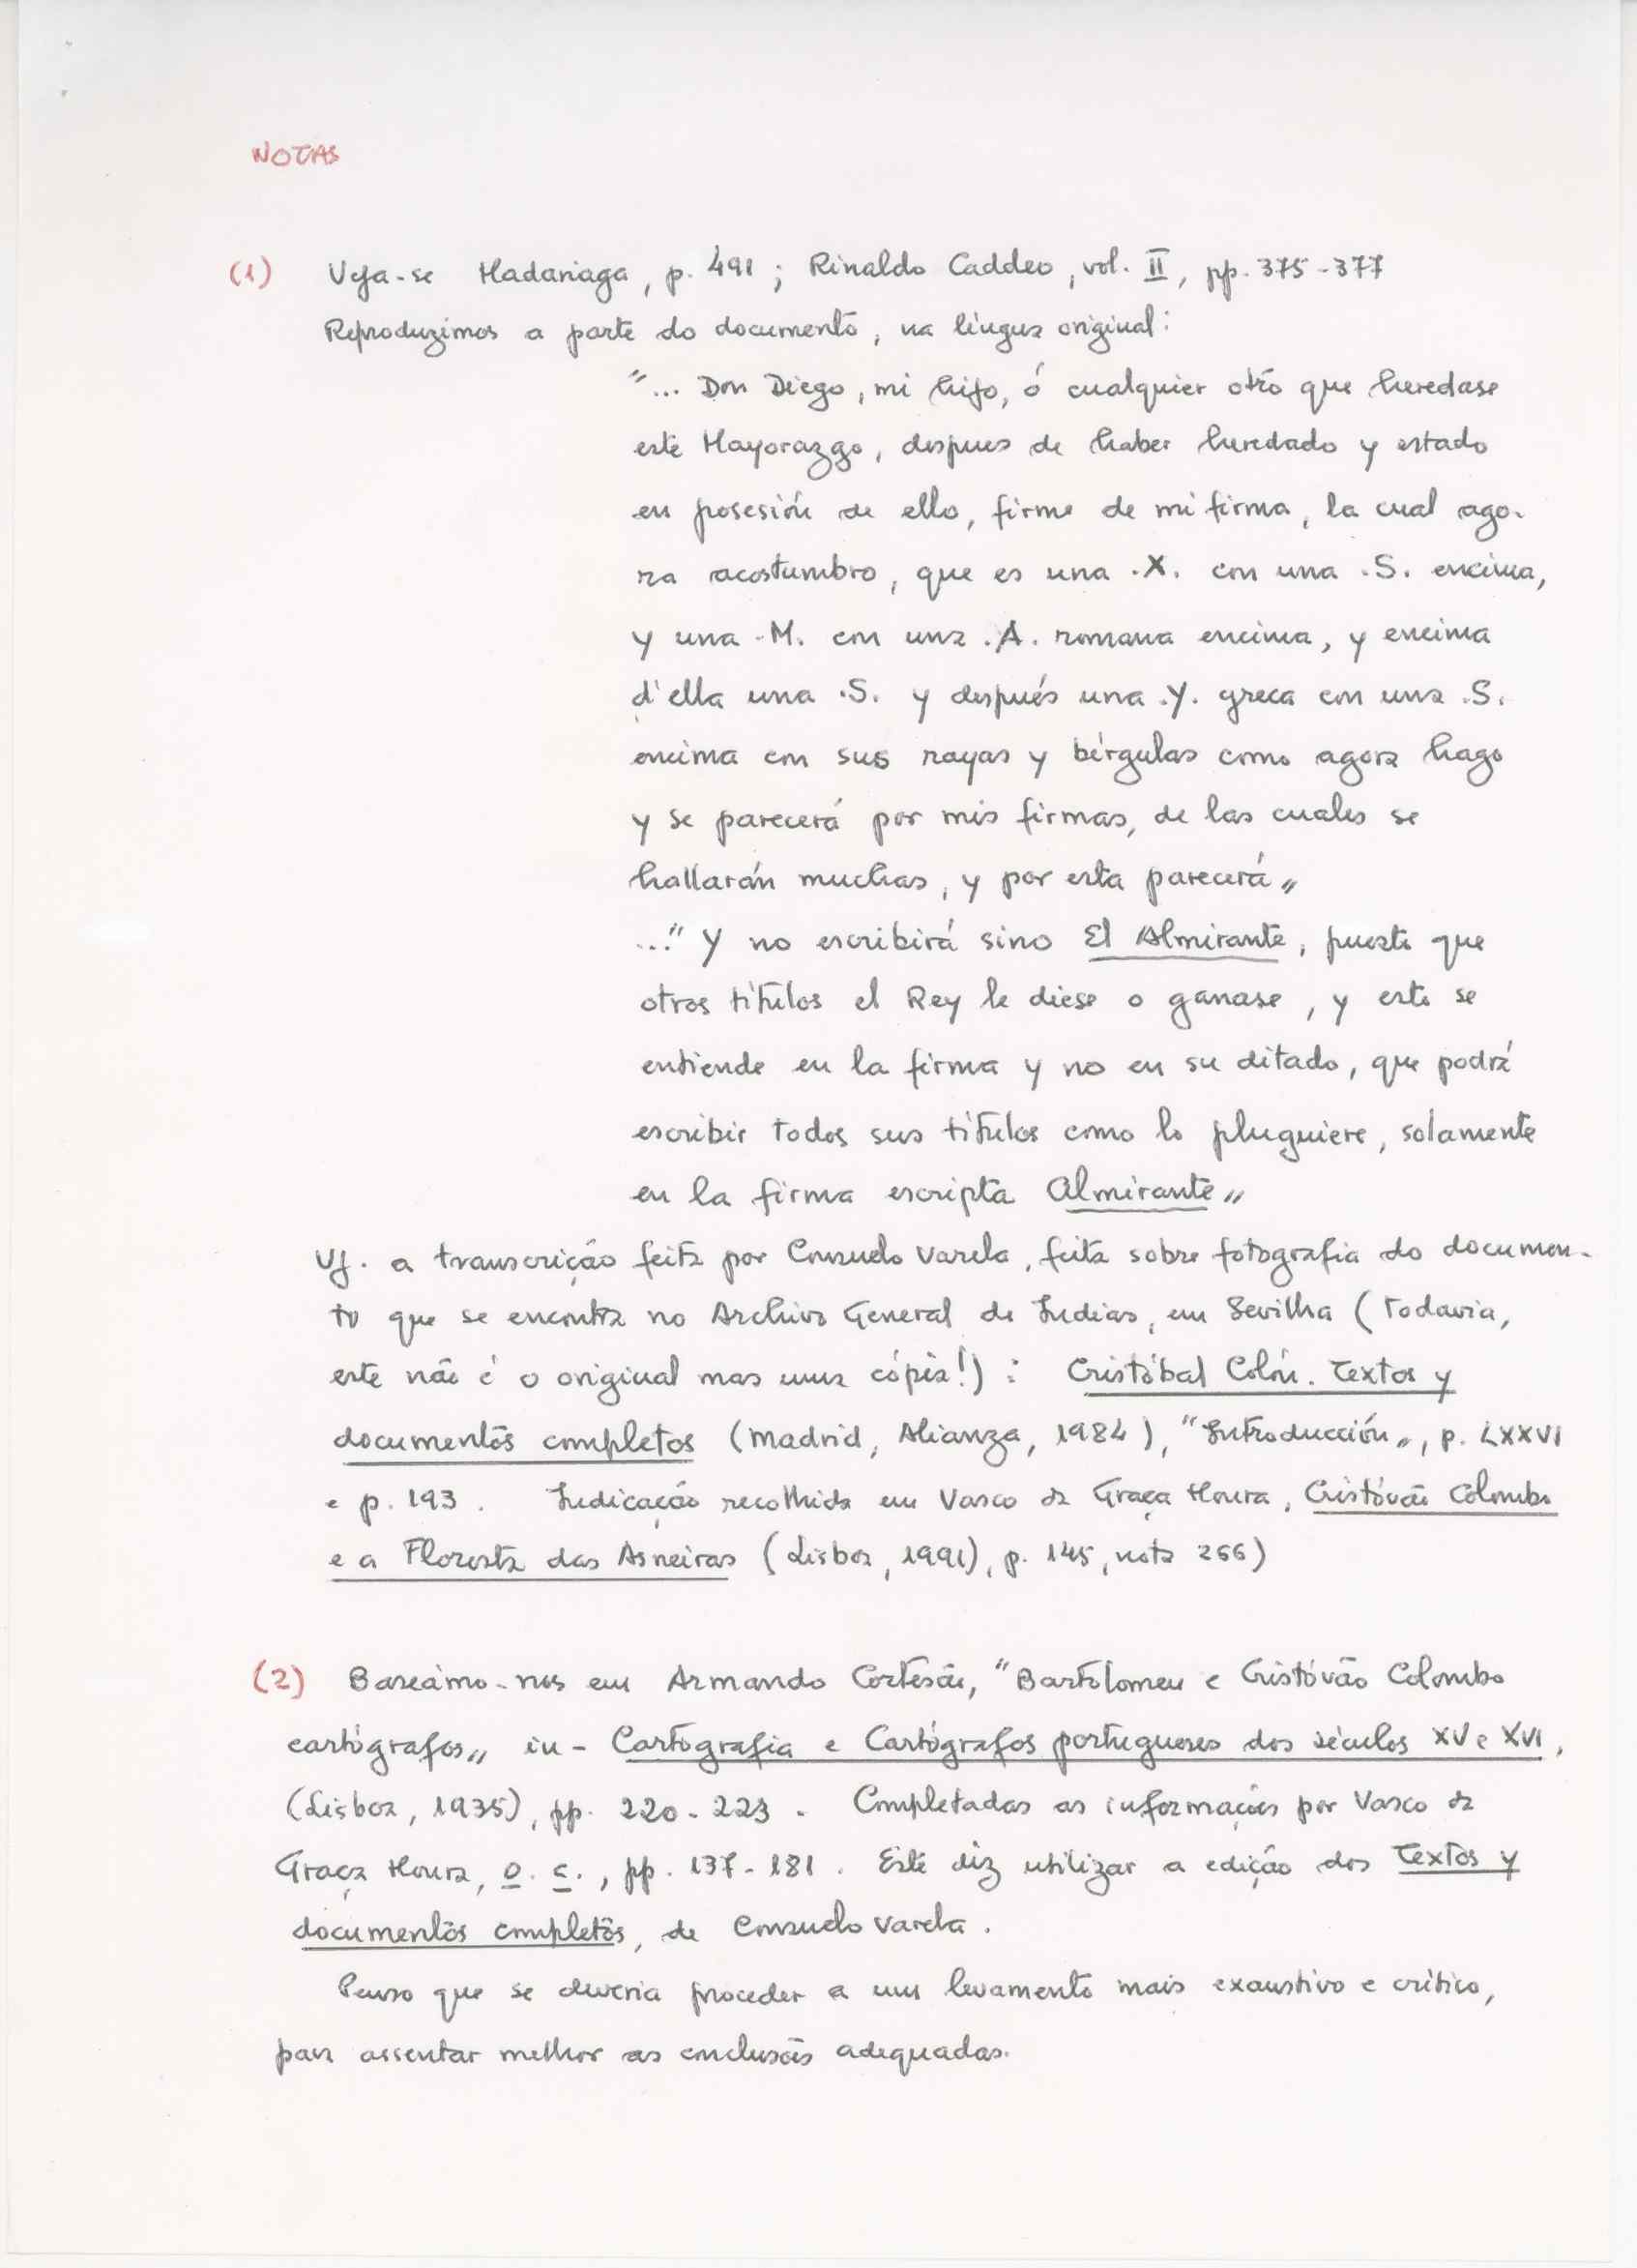 NOTAS
(1) Veja-se Madariaga, p. 491 ; Rinaldo Caddeo, vol. II, pp. 375-377
Reproduzimos a parte do documento, na língua original:
"... Don Diego, mi hijo, ó cualquier otro que heredase
este Mayorazgo, despues de haber heredado y estado
en posesión de ello, firme de mi firma, la cual ago-
ra acostumbro, que es una .X. con una .S. encima,
y una .M. con una .A. romana encima, y encima
d'ella una .S. y después una .Y. greca con una .S.
encima con sus rayas y bérgulas como agora hago
y se parecerá por mis firmas, de las cuales se
hallarán muchas, y por esta parecerá„
..." Y no escribirá sino El Almirante, puesto que
otros títulos el Rey le diese o ganase, y esto se
entiende en la firma y no en su ditado, que podrá
escribir todos sus títulos como lo pluguiere, solamente
en la firma escripta Almirante„
Vj. a transcrição feita por Consuelo Varela, feita sobre fotografia do documen-
to que se encontra no Archivo General de Indias, em Sevilha (todavia,
este não é o original mas uma cópia!) : Cristóbal Colón. Textos y
documentos completos (Madrid, Alianza, 1984), "Introducción„, p. LXXVI
e p. 193. Indicação recolhida em Vasco da Graça Moura, Cristóvão Colombo
e a Floresta das Asneiras (Lisboa, 1991), p. 145, nota 266)
(2) Baseámo-nos em Armando Cortesão, "Bartolomeu e Cristóvão Colombo
cartógrafos„ in - Cartografia e Cartógrafos portugueses dos séculos XV e XVI,
(Lisboa, 1935), pp. 220-223. Completadas as informações por Vasco da
Graça Moura, o. c., pp. 137-181. Este diz utilizar a edição dos Textos y
documentos completos, de Consuelo Varela.
Penso que se deveria proceder a um levamento mais exaustivo e crítico,
para assentar melhor as conclusões adequadas.